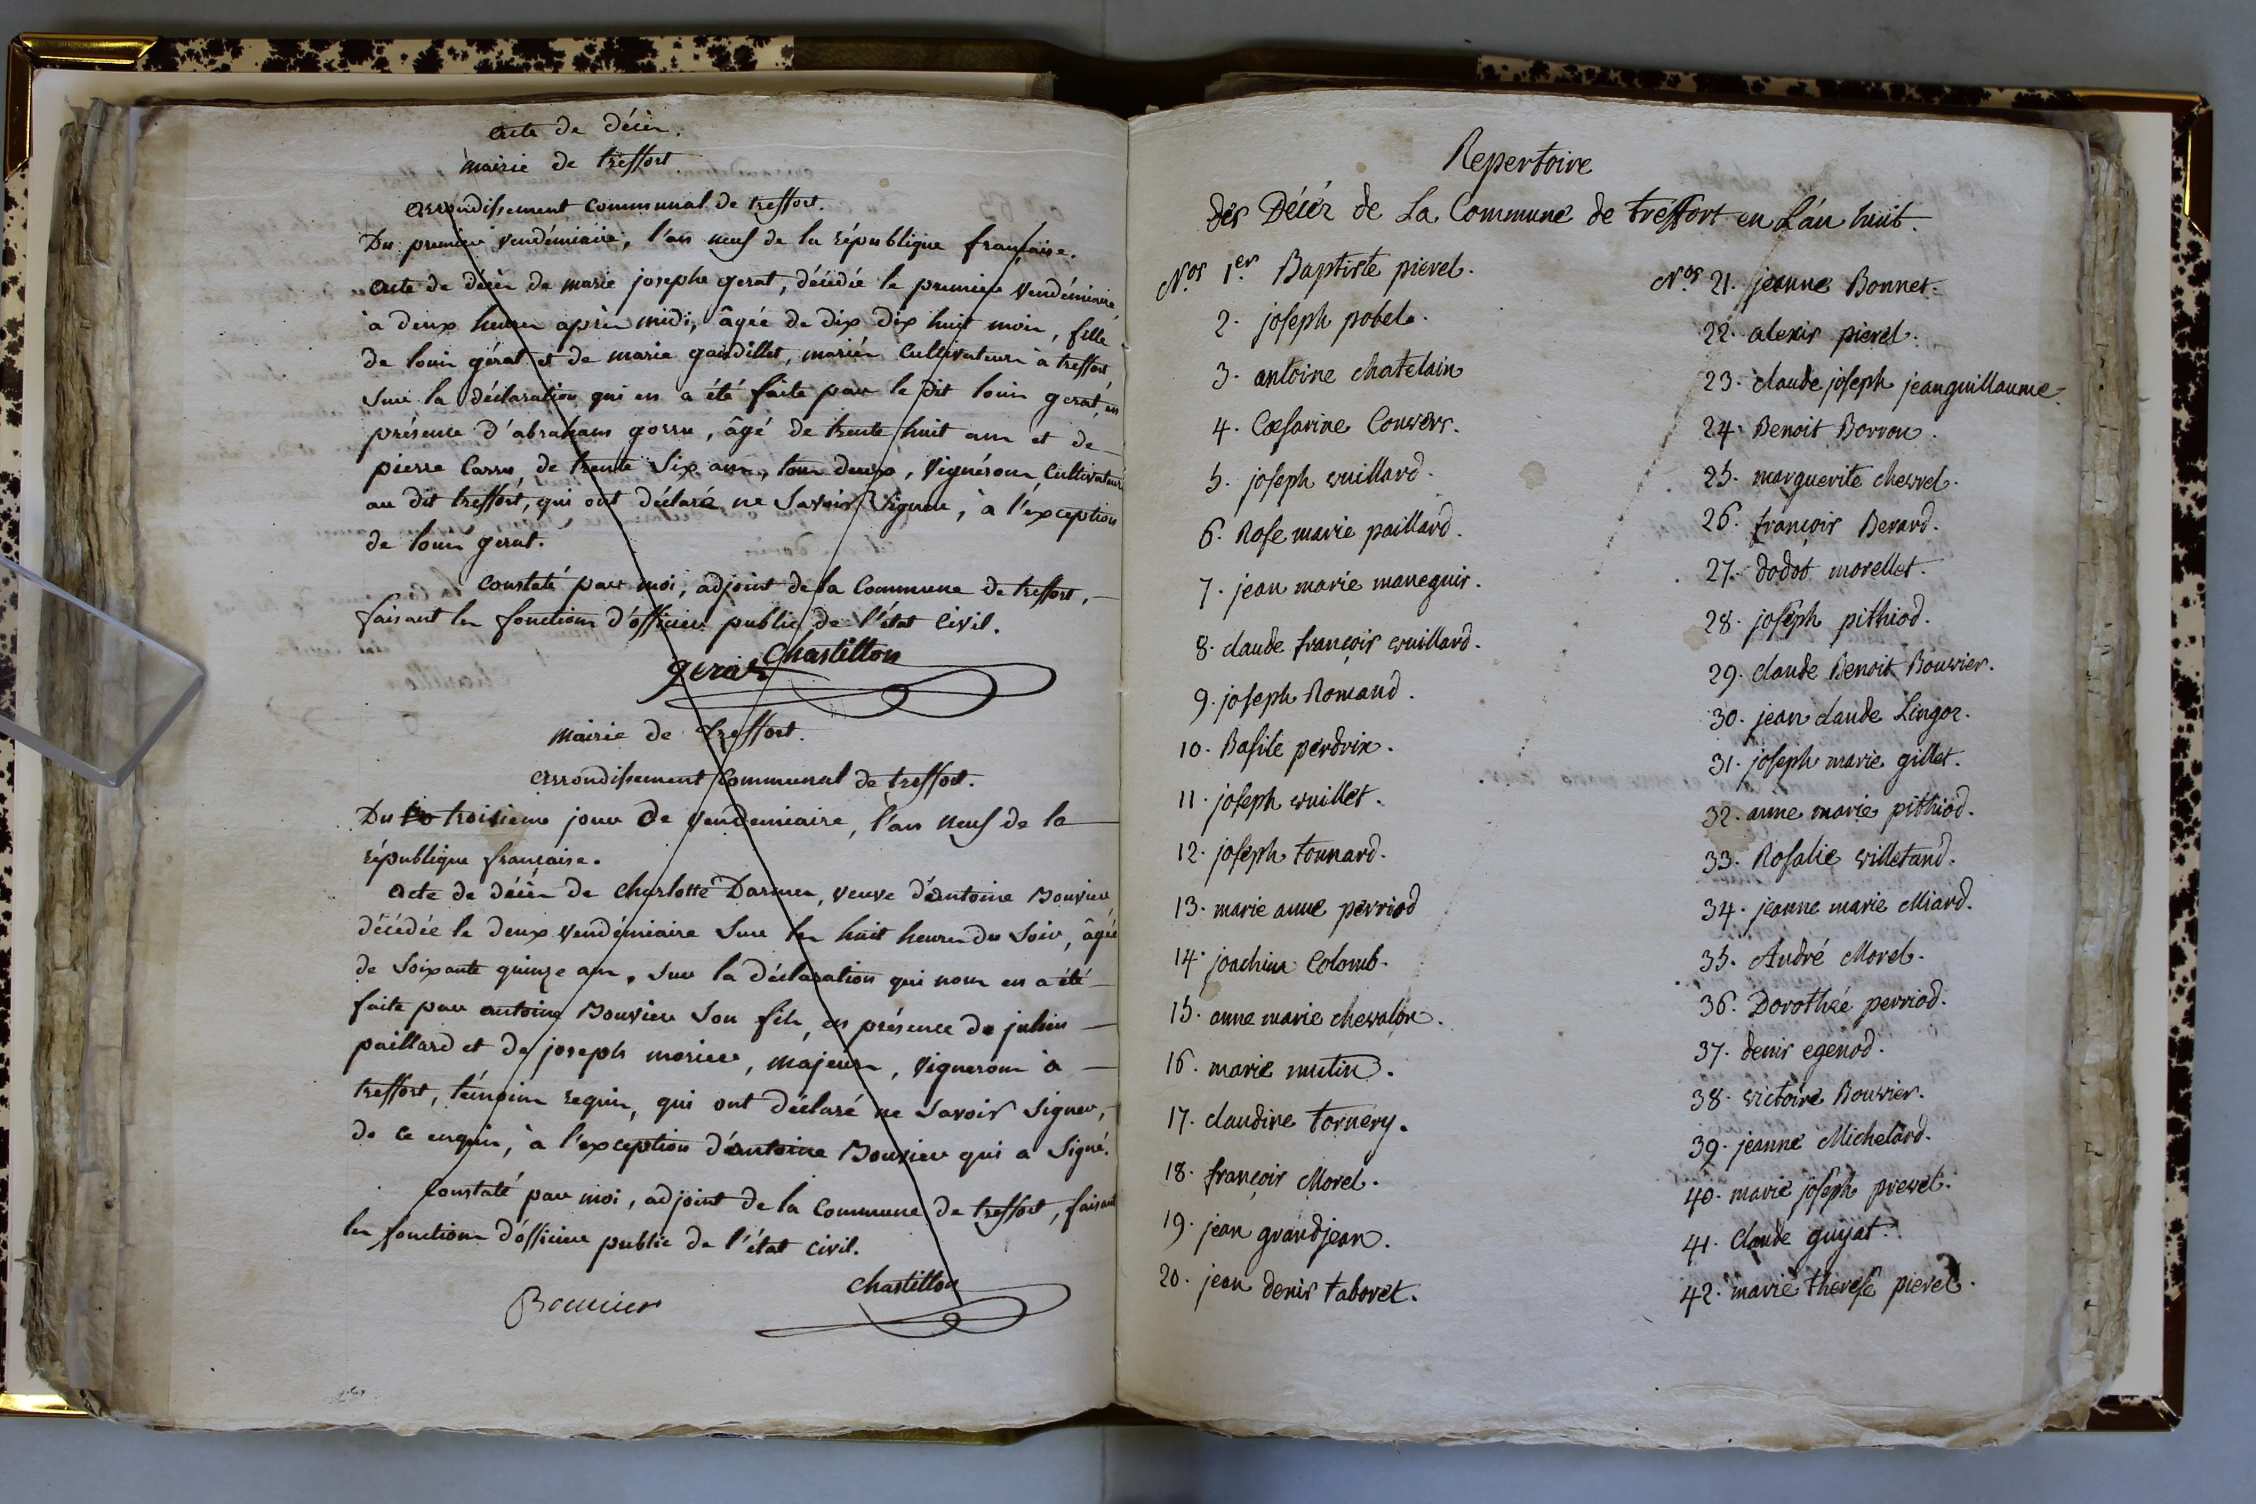 acte de décès.
mairie de treffort
arrondissement communal de treffort.
Du premier vendémiaire, l'an neuf de la république française.
acte de décès de marie josephe gerat, décédée le premier vendémiaire
à deux heures après midi, âgée de dix dix huit mois, fille
de louis gérat et de marie gaudillet, mariés cultivateurs à treffort
sur la déclaration qui en a été faite par le dit louis gerat, en
présence d'abraham gorru, âgé de trente huit ans et de
pierre Carru de trente six ans, tous deux, vignerons cultivateurs
au dit treffort, qui ont déclaré ne savoir signer, à l'exception
de louis gerat.
constaté par moi, adjoint de la commune de treffort,
faisant les fonctions d'officier public de l'état civil.
gerat Chastillon
mairie de treffort.
arrondissement communal de treffort.
Du troisieme jour de vendemiaire, l'an neuf de la
république française.
acte de décès de charlotte Darmes, veuve d'antoine Bouvier
décédée le deux vendémiaire sur les huit heures du soir, âgée
de soixante quinze ans, sur la déclaration qui nous en a été
faite par antoine Bouvier son fils, en présence de julien
paillard et de joseph morier, majeurs, vignerons à
treffort, témoins requis, qui ont déclaré ne savoir signer,
de ce enquis, à l'exception d'antoine Bouvier qui a signé.
constaté par moi, adjoint de la commune de treffort, faisant
les fonctions d'officier public de l'état civil.
Bouvier chastillon
Repertoire
des Décés de La Commune de tréffort en L'an huit.
N.os 1.er Baptiste pierel.
2. joseph pobel.
3. antoine chatelain
4. Cæsarine Couvers.
5. joseph vuillard.
6. Rose marie paillard.
7. jean marie maneguis.
8. claude françois vuillard.
9. joseph Romand.
10. Basile perdrix.
11. joseph vuillet.
12. joseph tounard.
13. marie anne perriod
14. joachim Colomb.
15. anne marie chevalon.
16. marie mutin.
17. claudine tornery.
18. françois Morel.
19. jean grandjean.
20. jean denis taboret.
N.os 21. jeanne Bonnet.
22. alexis pierel.
23. claude joseph jeanguillaume.
24. Benoit Borron.
25. marguerite chevrel.
26. françois Berard.
27. dodot morellet.
28. joseph pithiod.
29. claude Benoit Bouvier.
30. jean claude Lingoz.
31. joseph marie gillet.
32. anne marie pithiod.
33. Rosalie villetand.
34. jeanne marie Miard.
35. André Morel.
36. Dorothée perriod.
37. denis egenod.
38. victoire Bouvier.
39. jeanne Michelard.
40. marie joseph prevet.
41. claude guyat.
42. marie therese pierel.